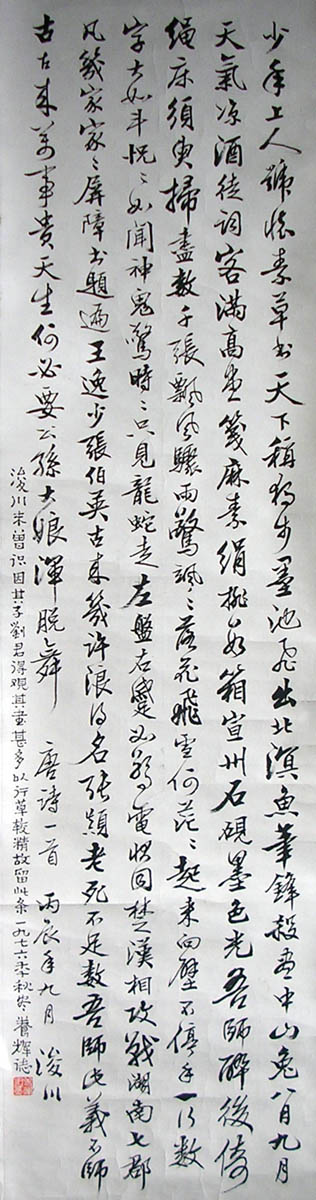 少年上人號懷素草书天下稱獨步墨池飛出北溟魚筆鋒殺盡中山兔八月九月
天氣涼酒徒詞客滿高堂箋麻素絹排數箱宣州石硯墨色光吾師醉後倚
繩床須臾掃盡數千張飄風驟雨驚颯〻落花飛雪何茫〻起來向壁不停手一行數
字大如斗怳〻如聞神鬼驚時〻只見龍蛇走左盤右蹙如驚電狀同楚漢相攻戰湖南七郡
凡幾家家〻屏障书題遍王逸少張伯英古來幾許浪得名張顛老死不足數吾師此義不師
古古來萬事貴天生何必要公孫大娘渾脫舞 唐诗一首 丙辰年九月 浚川
浚川未曾识因其子劉君得观其畫甚多以行草較精故留此条一九七六年秋 養輝誌